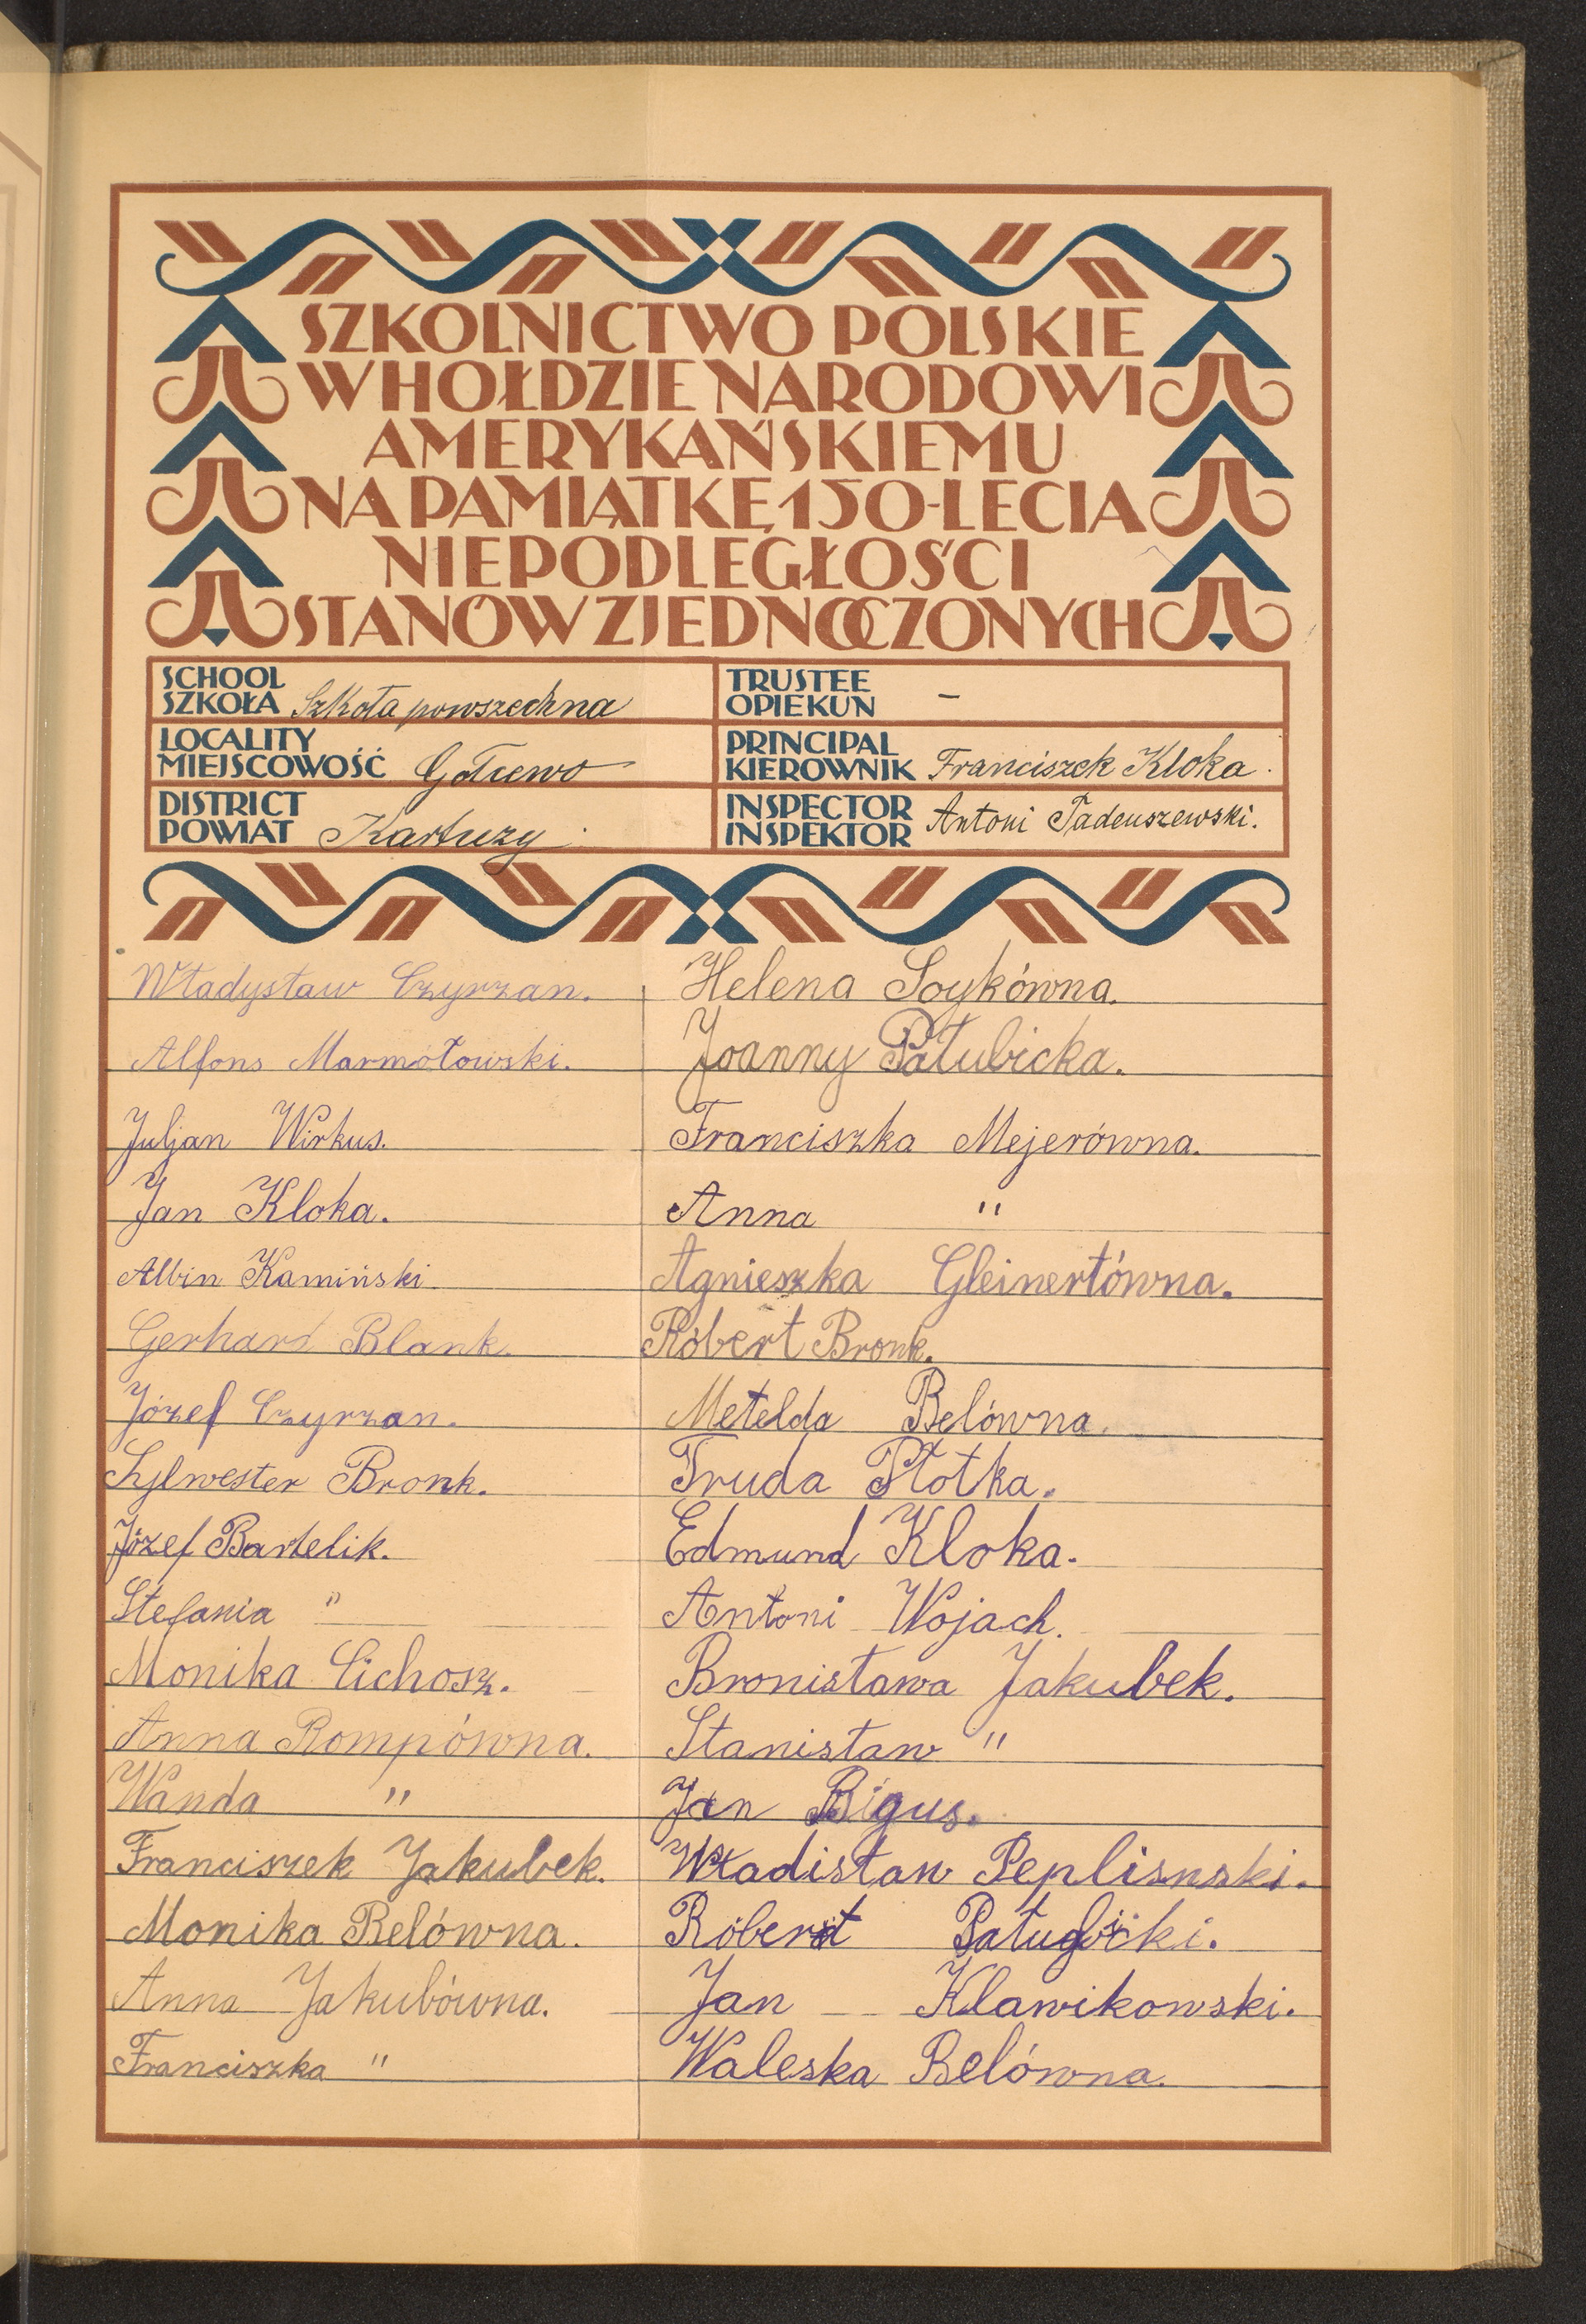 SZKOLNICTWO POLSKIE
W HOŁDZIE NARODOWI
AMERYKAŃSKIEMU
NA PAMIĄTKĘ 150-LECIA
NIEPODLEGŁOŚCI
STANÓW ZJEDNOCZONYCH
SCHOOL
SZKOŁA Szkoła powszechna
LOCALITY
MIEJSCOWOŚĆ
DISTRICT
POWIAT Kartuzy
TRUSTEE
OPIEKUN –
PRINCIPAL
KIEROWNIK Franciszek Kloka.
INSPECTOR
INSPEKTOR Antoni Tadeuszewski.
Władysław Czyrzan.
Alfons Marmołowski.
Juljan Wirkus.
Jan Kloka.
Albin Kamiński
Gerhard Blank.
Józef Czyrzan.
Sylwester Bronk.
Józef Bartelik.
Stefania "
Monika Cichosz.
Anna Rompówna.
Wanda "
Franciszek Jakubek.
Monika Belówna.
Anna Jakubówna.
Franciszka "
Helena Soykówna.
Joanny Pałubicka.
Franciszka Mejerówna.
Anna "
Agnieszka Gleinertówna.
Róbert Bronk.
Metelda Belówna.
Truda Płotka.
Edmund Kloka.
Antoni Wojach.
Bronisława Jakubek.
Stanisław "
Jan Bigus.
Władisław Peplisnski.
Róbert
Jan Klawikowski.
Waleska Belówna.